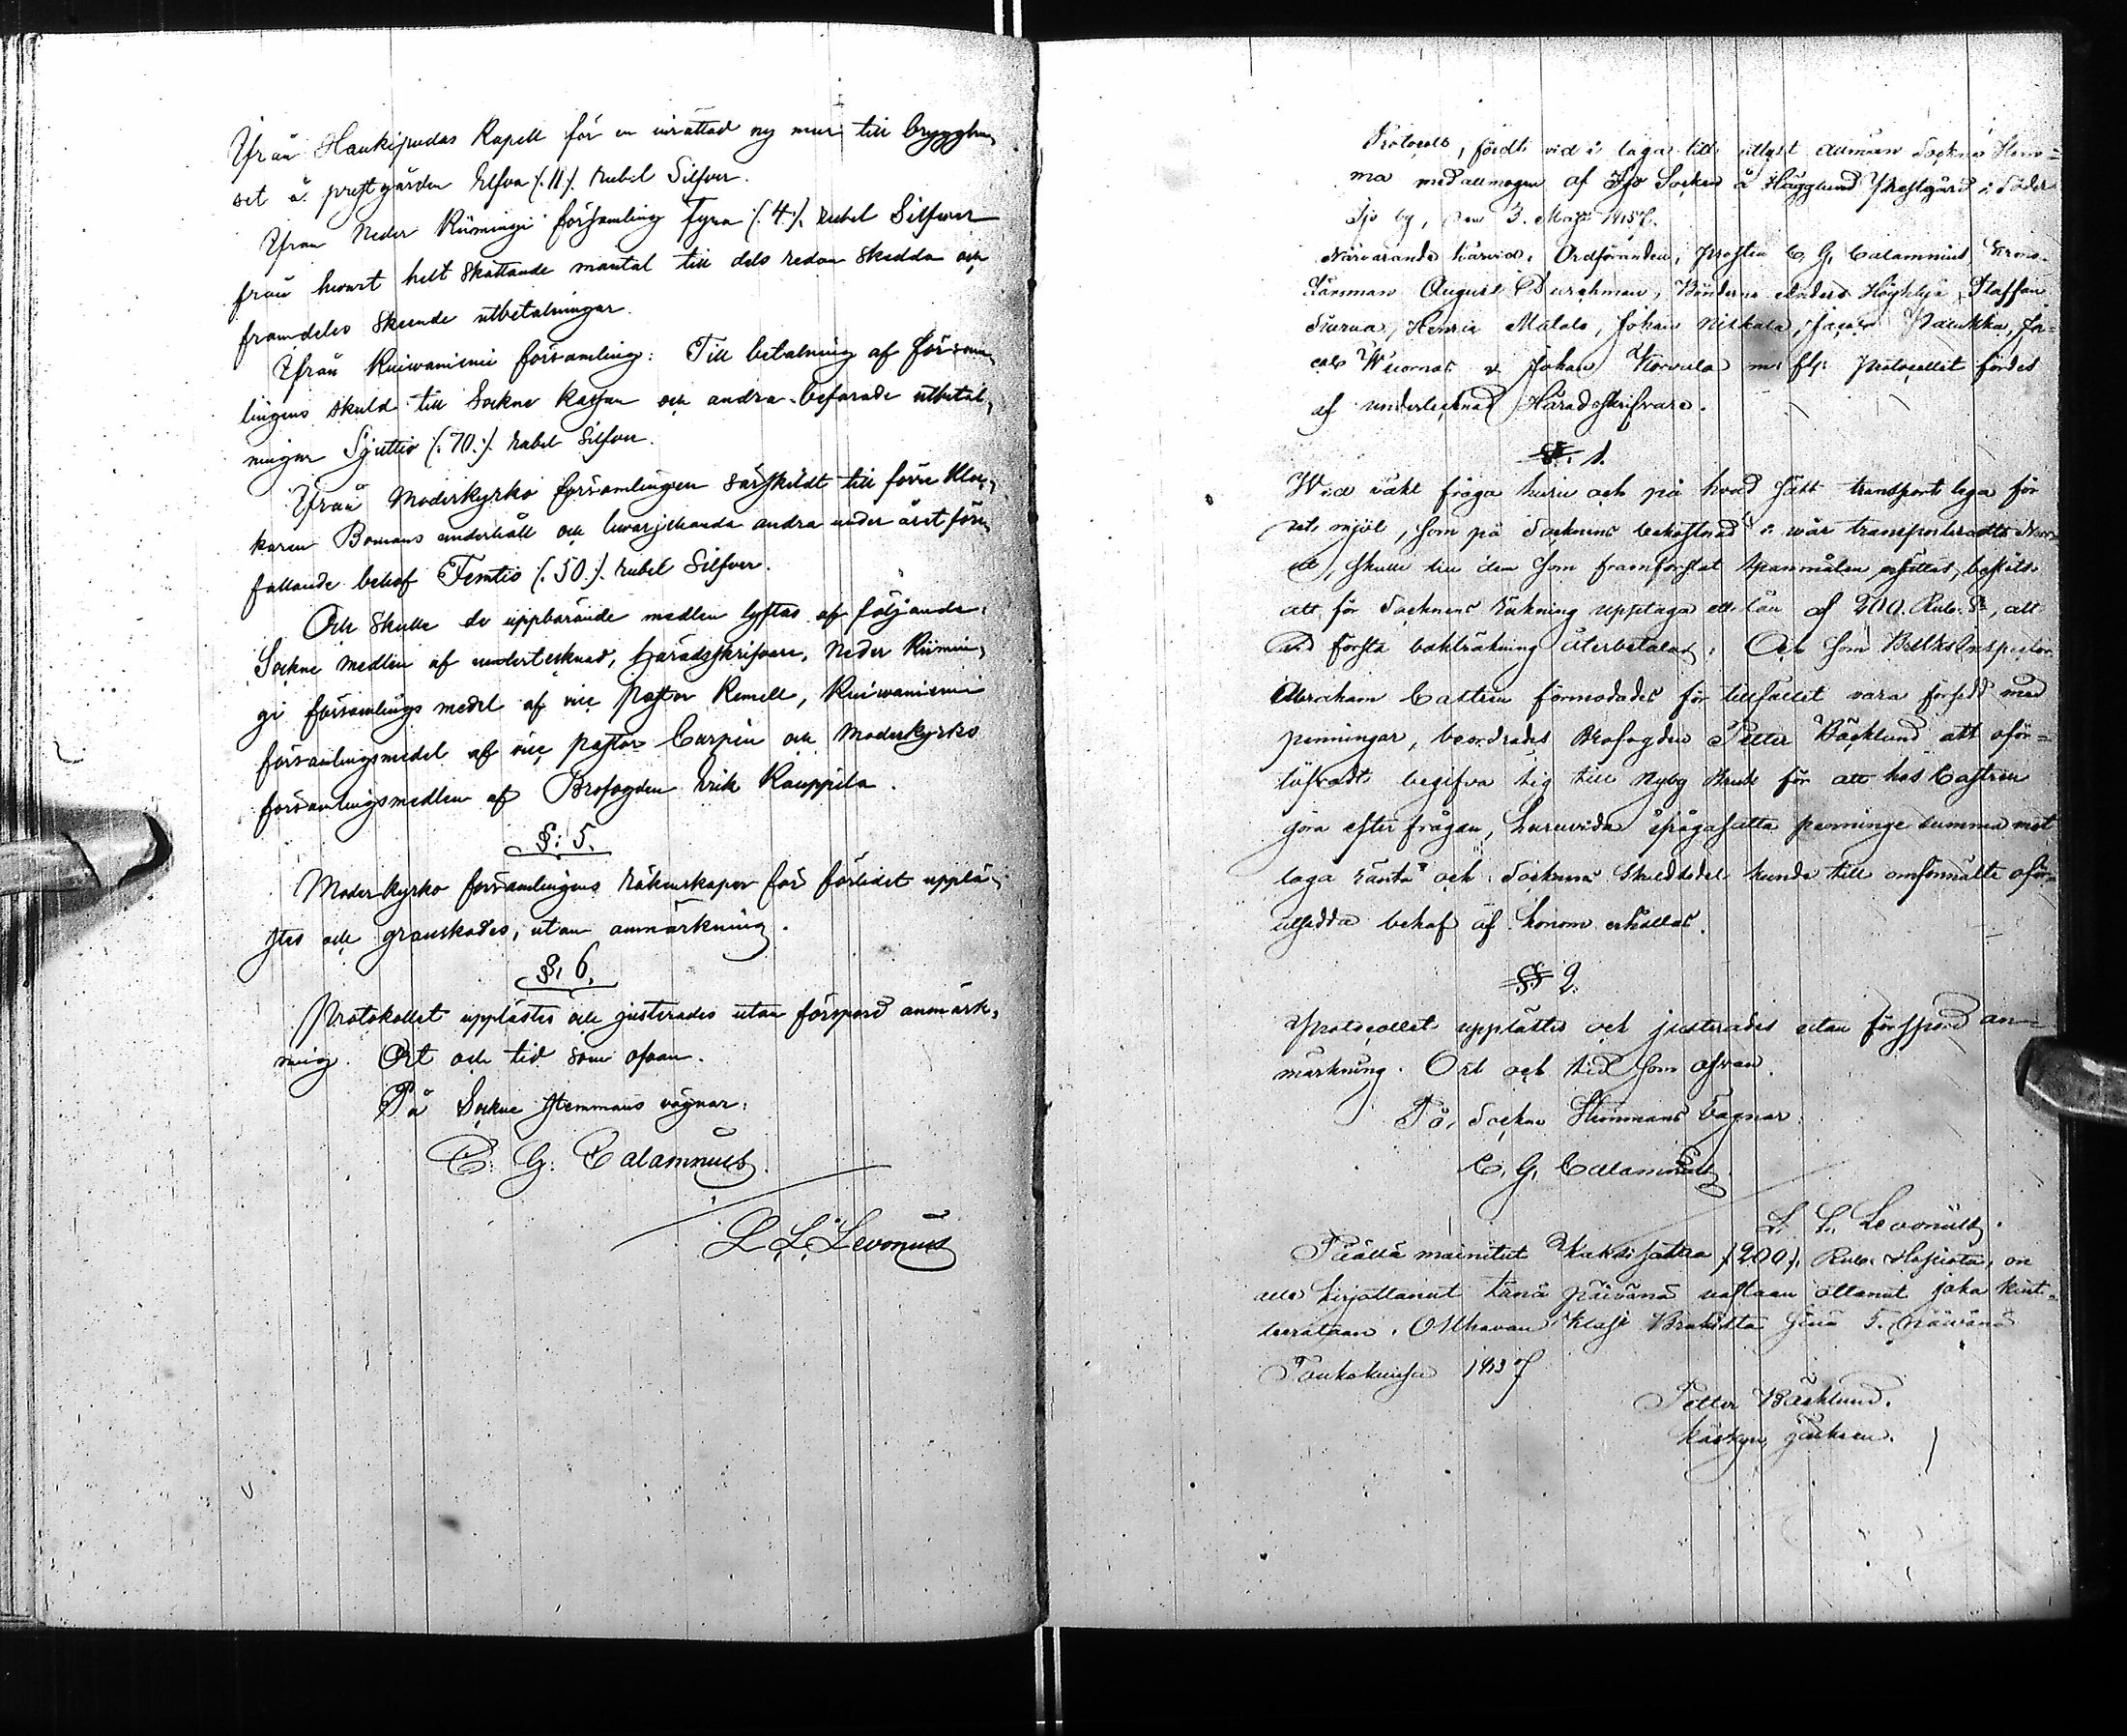 Ifrån Haukipudas Kapell för en inrättad ny mur till brygghu-
set å prestgården Elfva /:11:/ Rubel Silfver.
Ifrån Neder Kiimingi församling Fyra /:4:/ rubel Silfver
från hvart helt skattande mantal till dels redan skedda och
framdeles skeende utbetalningar.
Ifrån Kuivaniemi församling: Till betalning af försam-
lingens skuld till Sockne kassan och andra befarade utbetal-
ningar Sjuttio /:70:/ rubel Silfver.
Ifrån Moderkyrko församlingen särskildt till förre Kloc-
karen Bomans underhåll och hvarjehanda andra under året före-
fallande behof Femtio /:50:/ rubel Silfver.
Och skulle de uppbärande medlen lyftas af följande:
Sockne medlen af undertecknad, häradsskrifvare, Neder Kiimin-
gi församlings medel af vice pastor Remell, Kuivaniemi
församlingsmedel af vice pastor Curpén och Moderkyrko
församlingsmedlen af Brofogden Erik Kauppila.
§: 5.
Moderkyrko församlingens räkenskaper för förlidet upplä-
stes och granskades, utan anmärkning.
§: 6.
Protokollet upplästes och justerades utan förspord anmärk-
ning. Ort och tid som ofvan.
På Sockne stemmans vägnar:
C: G: Calamnius
L. L. Levonius
Protocoll, fördt vid i laga tid utlyst allmän Sockne Stem=
ma med allmogen af Ijo Socken å Hägglund Prestgård i Söder
Ijo by, den 3. Maji 1857.
Närvarande härvid: Ordföranden, Prosten C. G. Calamnius Krono-
Länsman August Durchman, Bönderne Anders Höykkyä, Staffan
Siurua, Henric Matala, Johan Niskala, Jacob Paukka, Ja=
cob Wuornos & Johan Korvala m: fl: Protocollet fördes
af undertecknad Häradsskrifvare.
§: 1.
Wid väkt fråga huru och på hvad sätt transport lega för
det mjöl, som på Socknens bekostnad i vår transporterats
skulle till den som framforslat Spannmålen, beslöts
att för Socknens räkning upptaga ett lån af 200. Rub. Sr, att
vid första boklräkning återbetalas: Och som BruksInspector
Abraham Castrén förmodades för tillfället vara försedd med
penningar, beordrades Brofogden Petter Bäcklund att oför=
töfvadt begifva sig till Nyby Bruk för att hos Castrén
göra efter frågan, huruvida ifrågasatta penninge summa mot
laga ränta och Socknens Skuldsedel kunde till omförmälte oför-
utsedda behof af honom erhållas.
§ 2.
Protocollet upplästes och justerades utan förspord an=
märkning. Ort och tid som ofvan.
På Sockne Stemmans Vägnar:
C. G. Calamnius
L. L. Levonius.
Täällä mainitut Kaksisattaa /:200:/ Rub. Hopiata, on
alle kirjottanut tänä päivänä vastaan ottanut joka kuit-
teerataan. Olhavan Klasi Brukista sinä 5. päivänä
Toukokuusa 1857
Petter Bäcklund.
käskyn jälkeen.